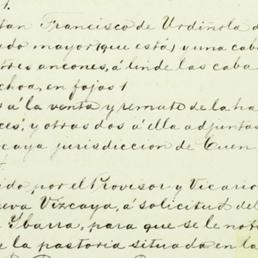 1.
tan Francisco de Urdiñola d
do mayor (que está) y una cab
tres ancones, á linde las caba
choa, en fojas 1
s á la venta y remate de la ha
ces; y otras dos á ella adjuntas
caya jurisdiccion de Cuen
ido por el Provisor y Vicario
eva Vizcaya, á solicitud del
Ybarra, para que se le noti
e la pastoria situada en la